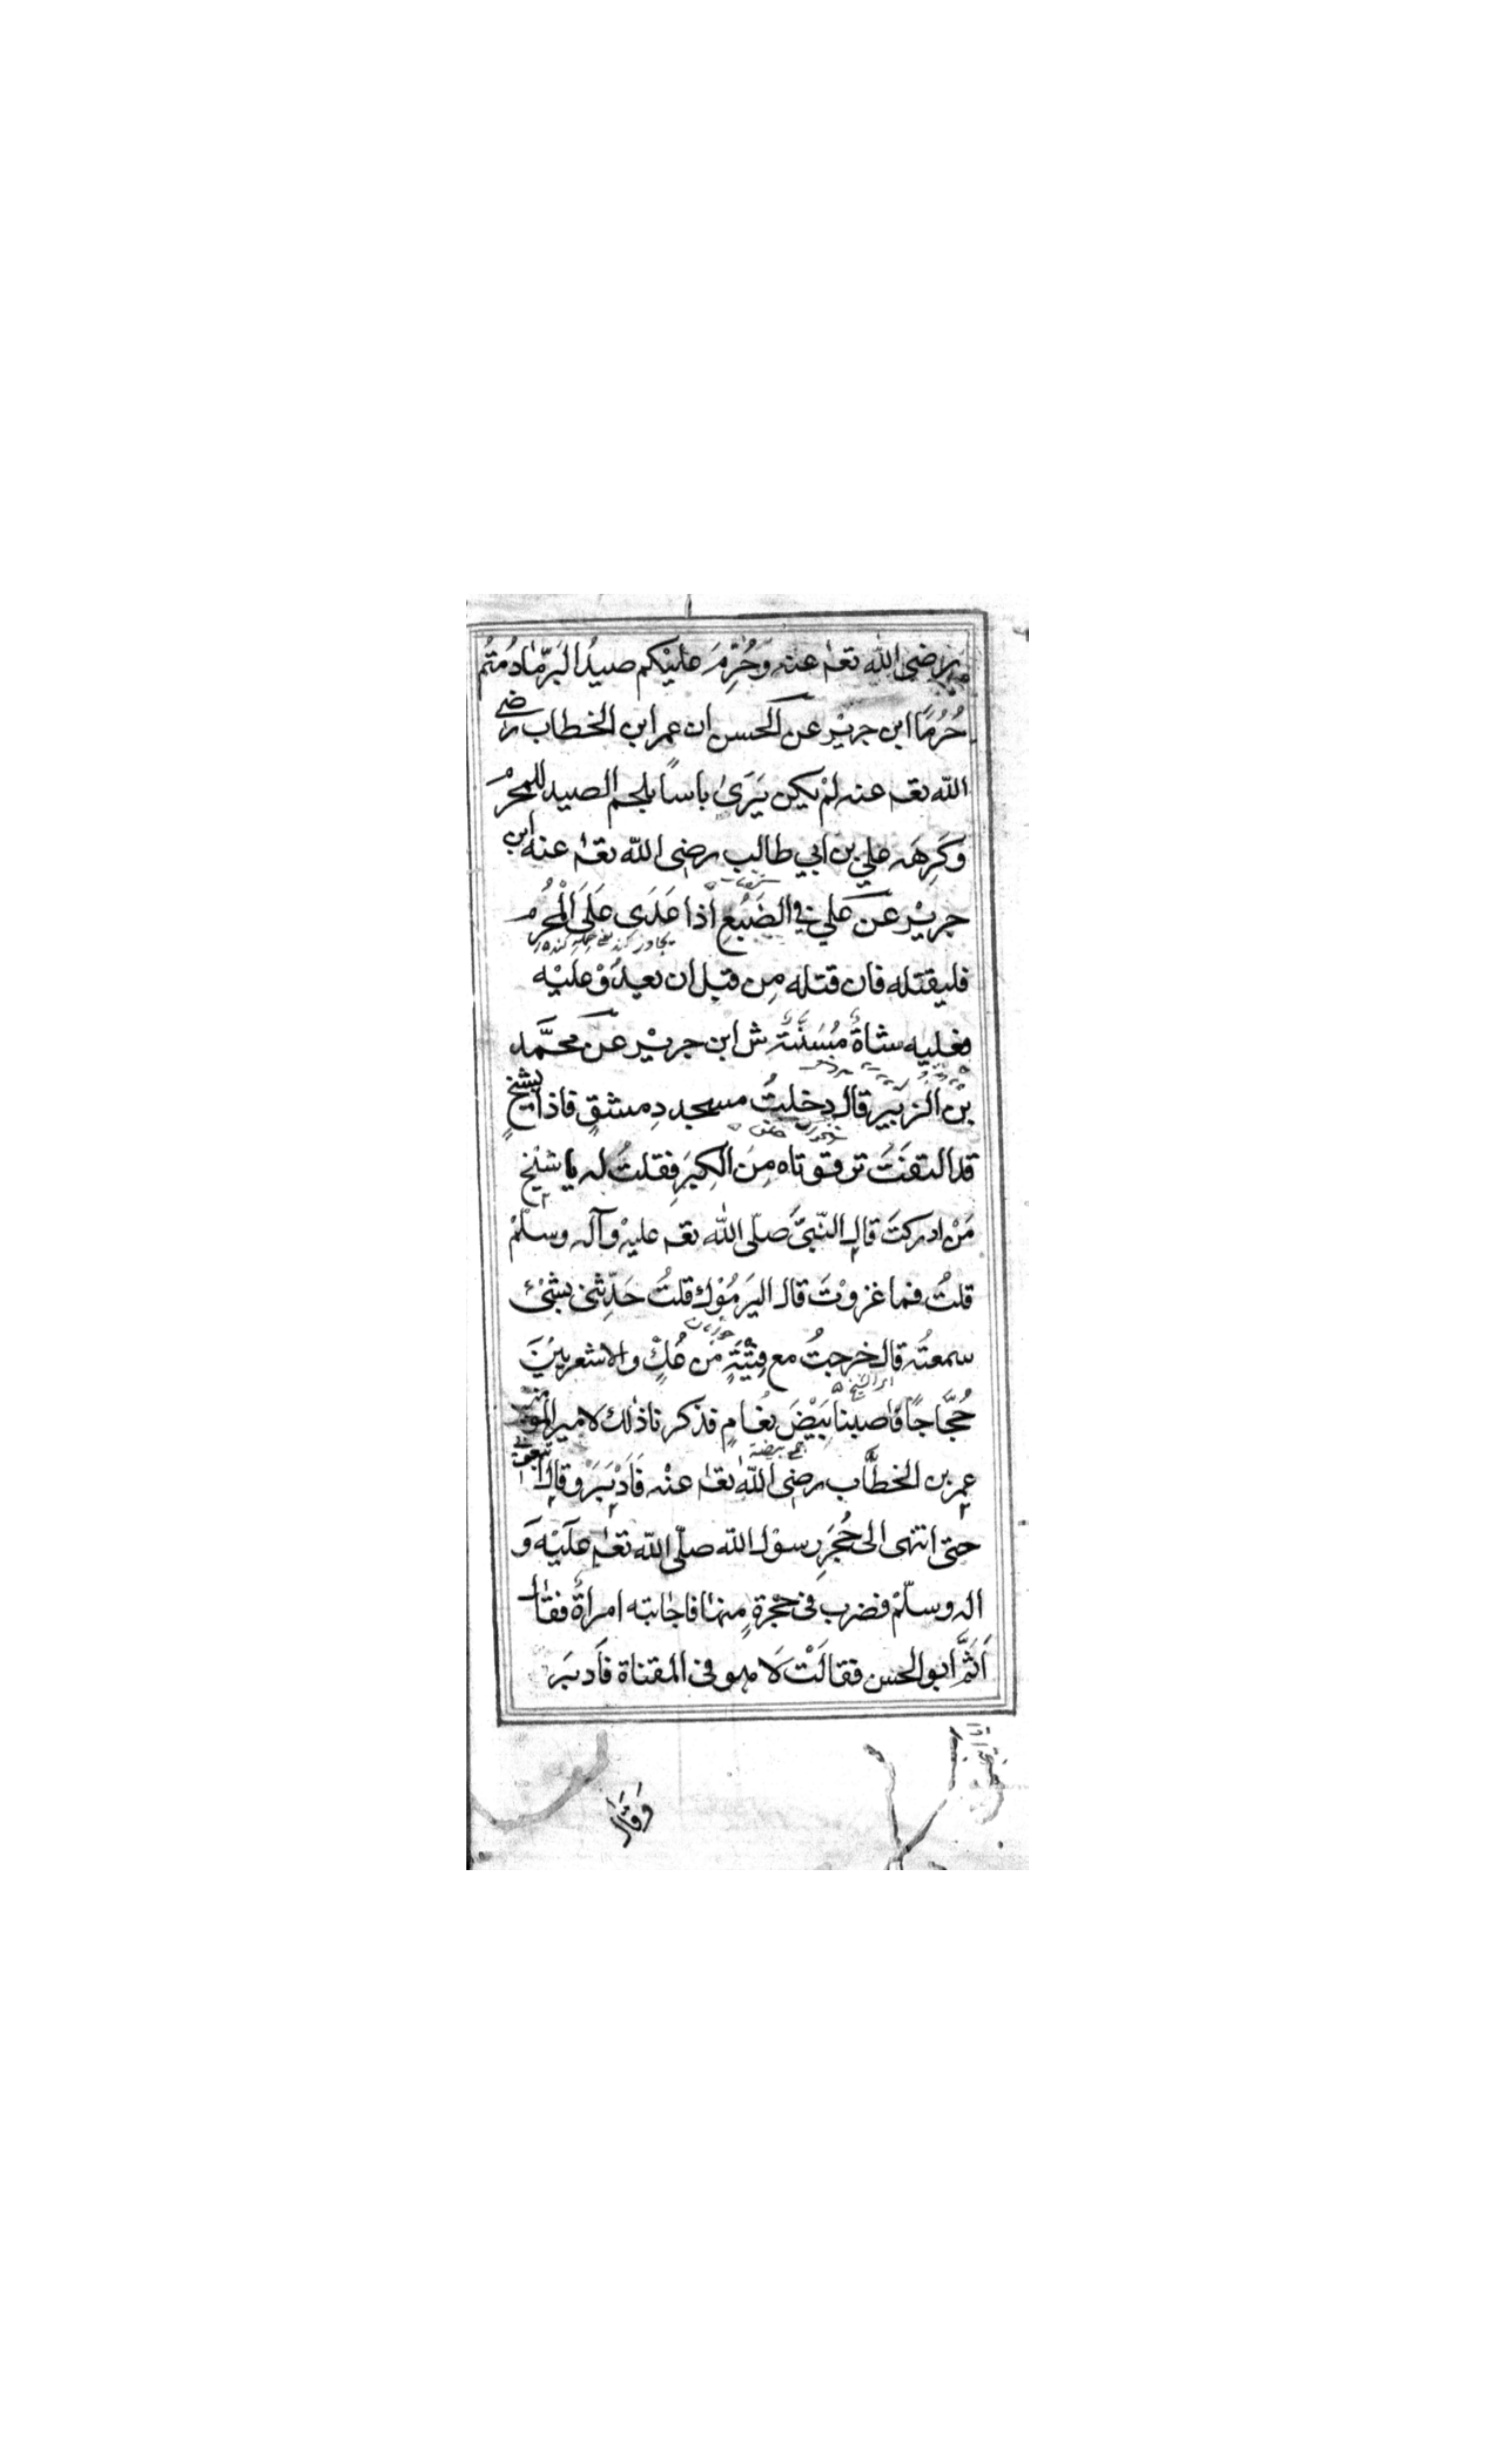 رضى الله تعم عنه وَحُرِّمَ عليْكم صيدُ البَرِّ مَا دُمْتُمْ
حُرُمًا ابن جريْر عن الحسن ان عمر ابن الخطاب رضى
الله تعم عنه لمْ يكن يَرَىٰ باساً بلحم الصيد للمحْرِم
وكَرِهَه علي بن ابي طالب رضى الله تعم عنه ابن
جريْر عن علي في الضَبْعِ اذا عَدَى عَلَى الْمُحْرِم
فليقتله فان قتله مِن قبل ان يعدُوْ عليْه
فعليه شاةٌ مُسَنَّةٌ ش ابن جريْر عن محمَّد
بْن الزبير قال دخلتُ مسجد دِمشقٍ فاذا بشيْخٍ
قد التقَتْ ترقوتاه مِنَ الكِبَرِ فقلتُ له يا شيْخ
مَنْ ادركتَ قال النّبيَّ صلّى الله تعم عليْه وآله وسلّمْ
قلتُ فما غزوْتَ قال اليَرمُوْك قلتُ حَدِّثنى بشئ
سمعتَه قال خرجتُ مع فِتْيَةٍ من عُكٍّ والاشعريينَ
حُجَّاجًا فاصبْنا بَيْضَ نعامٍ فذكرنا ذٰلك لامير المومنين
عمر بن الخطَّاب رضى الله تعم عنْه فَادْبَرَ وقال اتبعونى
حتى انتهى الى حُجَرِ رسوْل الله صلّى الله تعم عليْه وَ
اله وسلّمْ فضرب فى حجْرةٍ منها فاجابته امراةٌ فقال
اَثَمَّ ابو الحسن فقالَتْ لَا هو فى المقناة فَادبَر
وَقَالَ